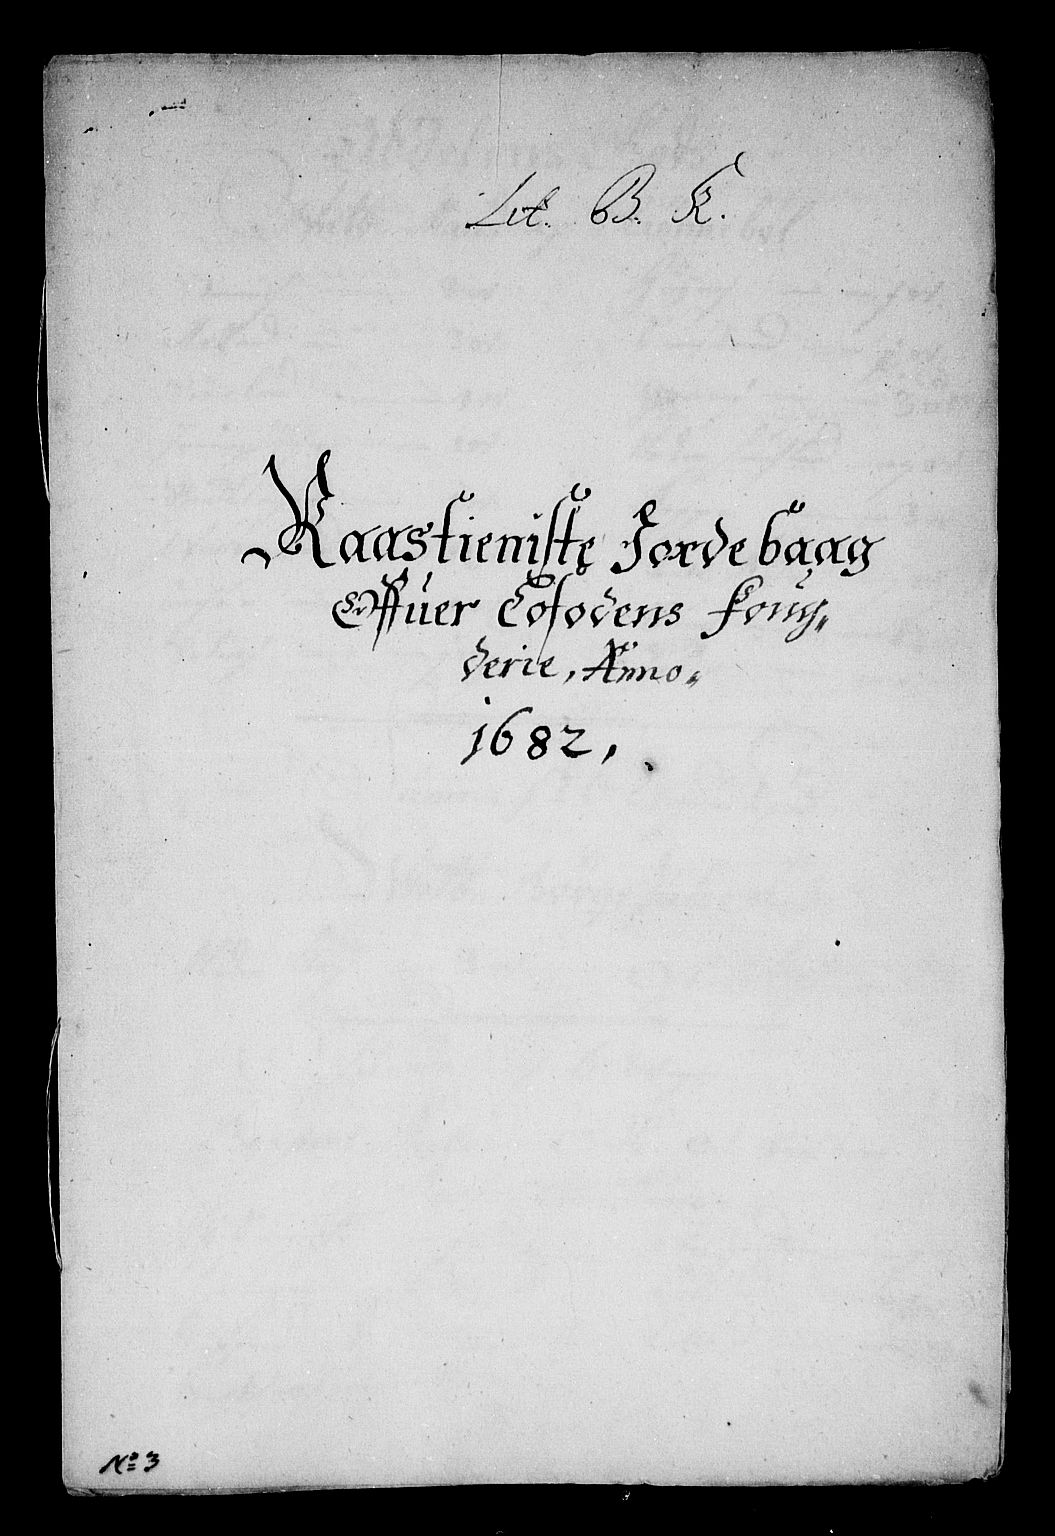 Lit. B. K.
Raastieniste Jordebaag
Offuer Lofodens foug„
derie, Anno„
1682,
No 3